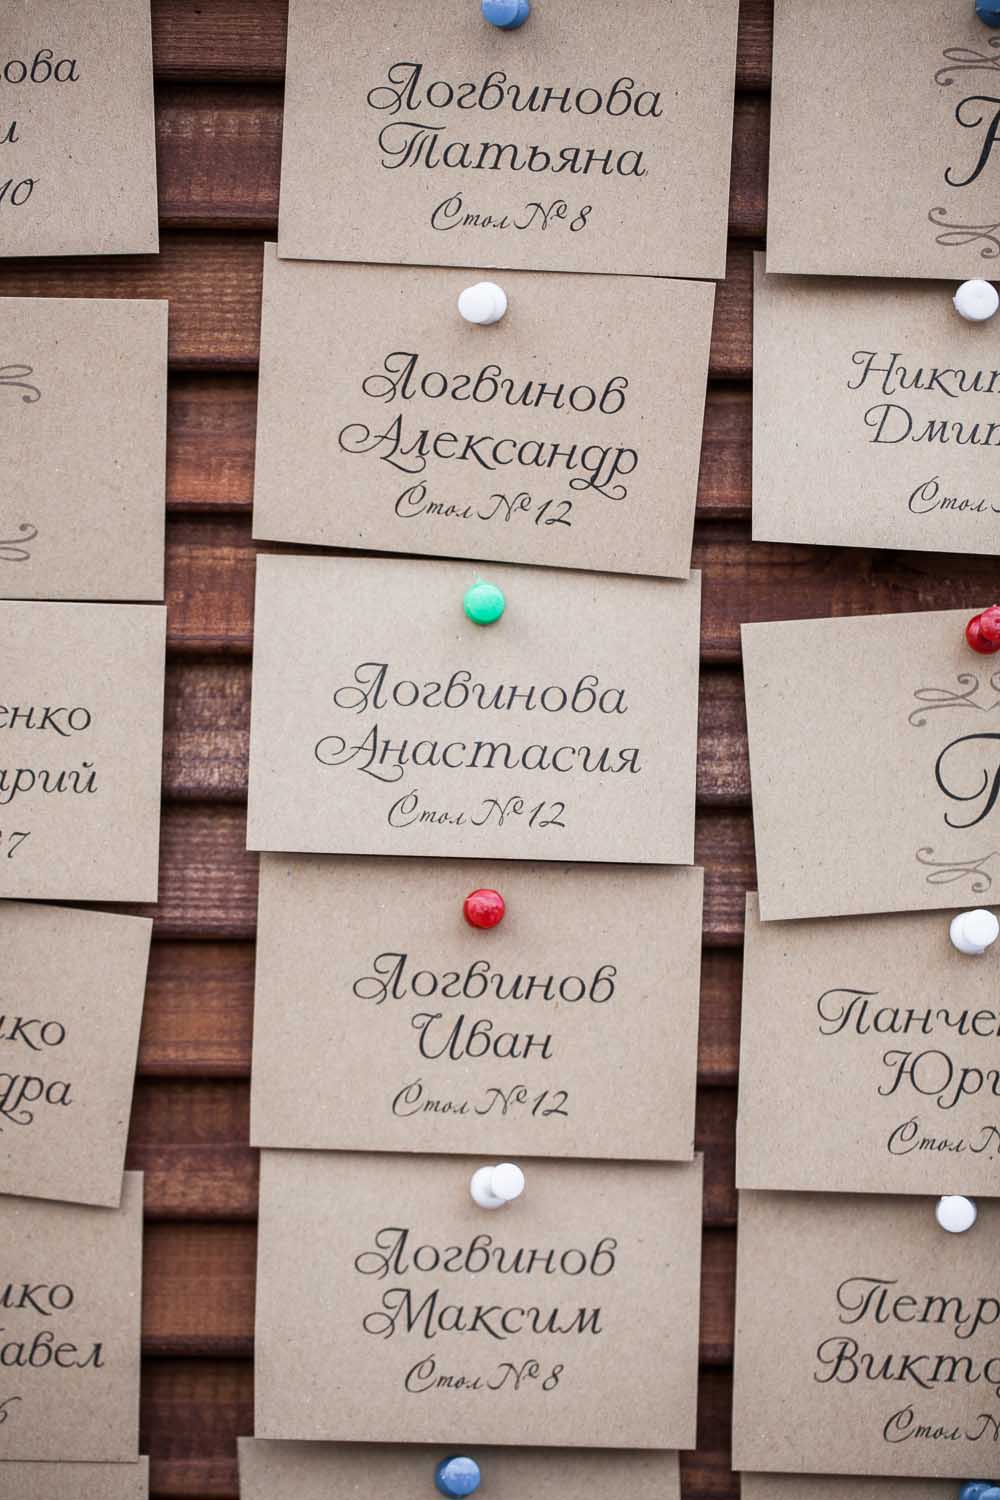 10
енко
арий
7
Логвинова
Татьяна
Стол № 8
Логвинов
Александр
Стол № 12
Логвинова
Анастасия
Стол № 12
Логвинов
Иван
Стол № 12
Логвинов
Максим
Стол № 8
Дми
Стол
Панче
Юри
Стол №
Петр
Викто
Стол